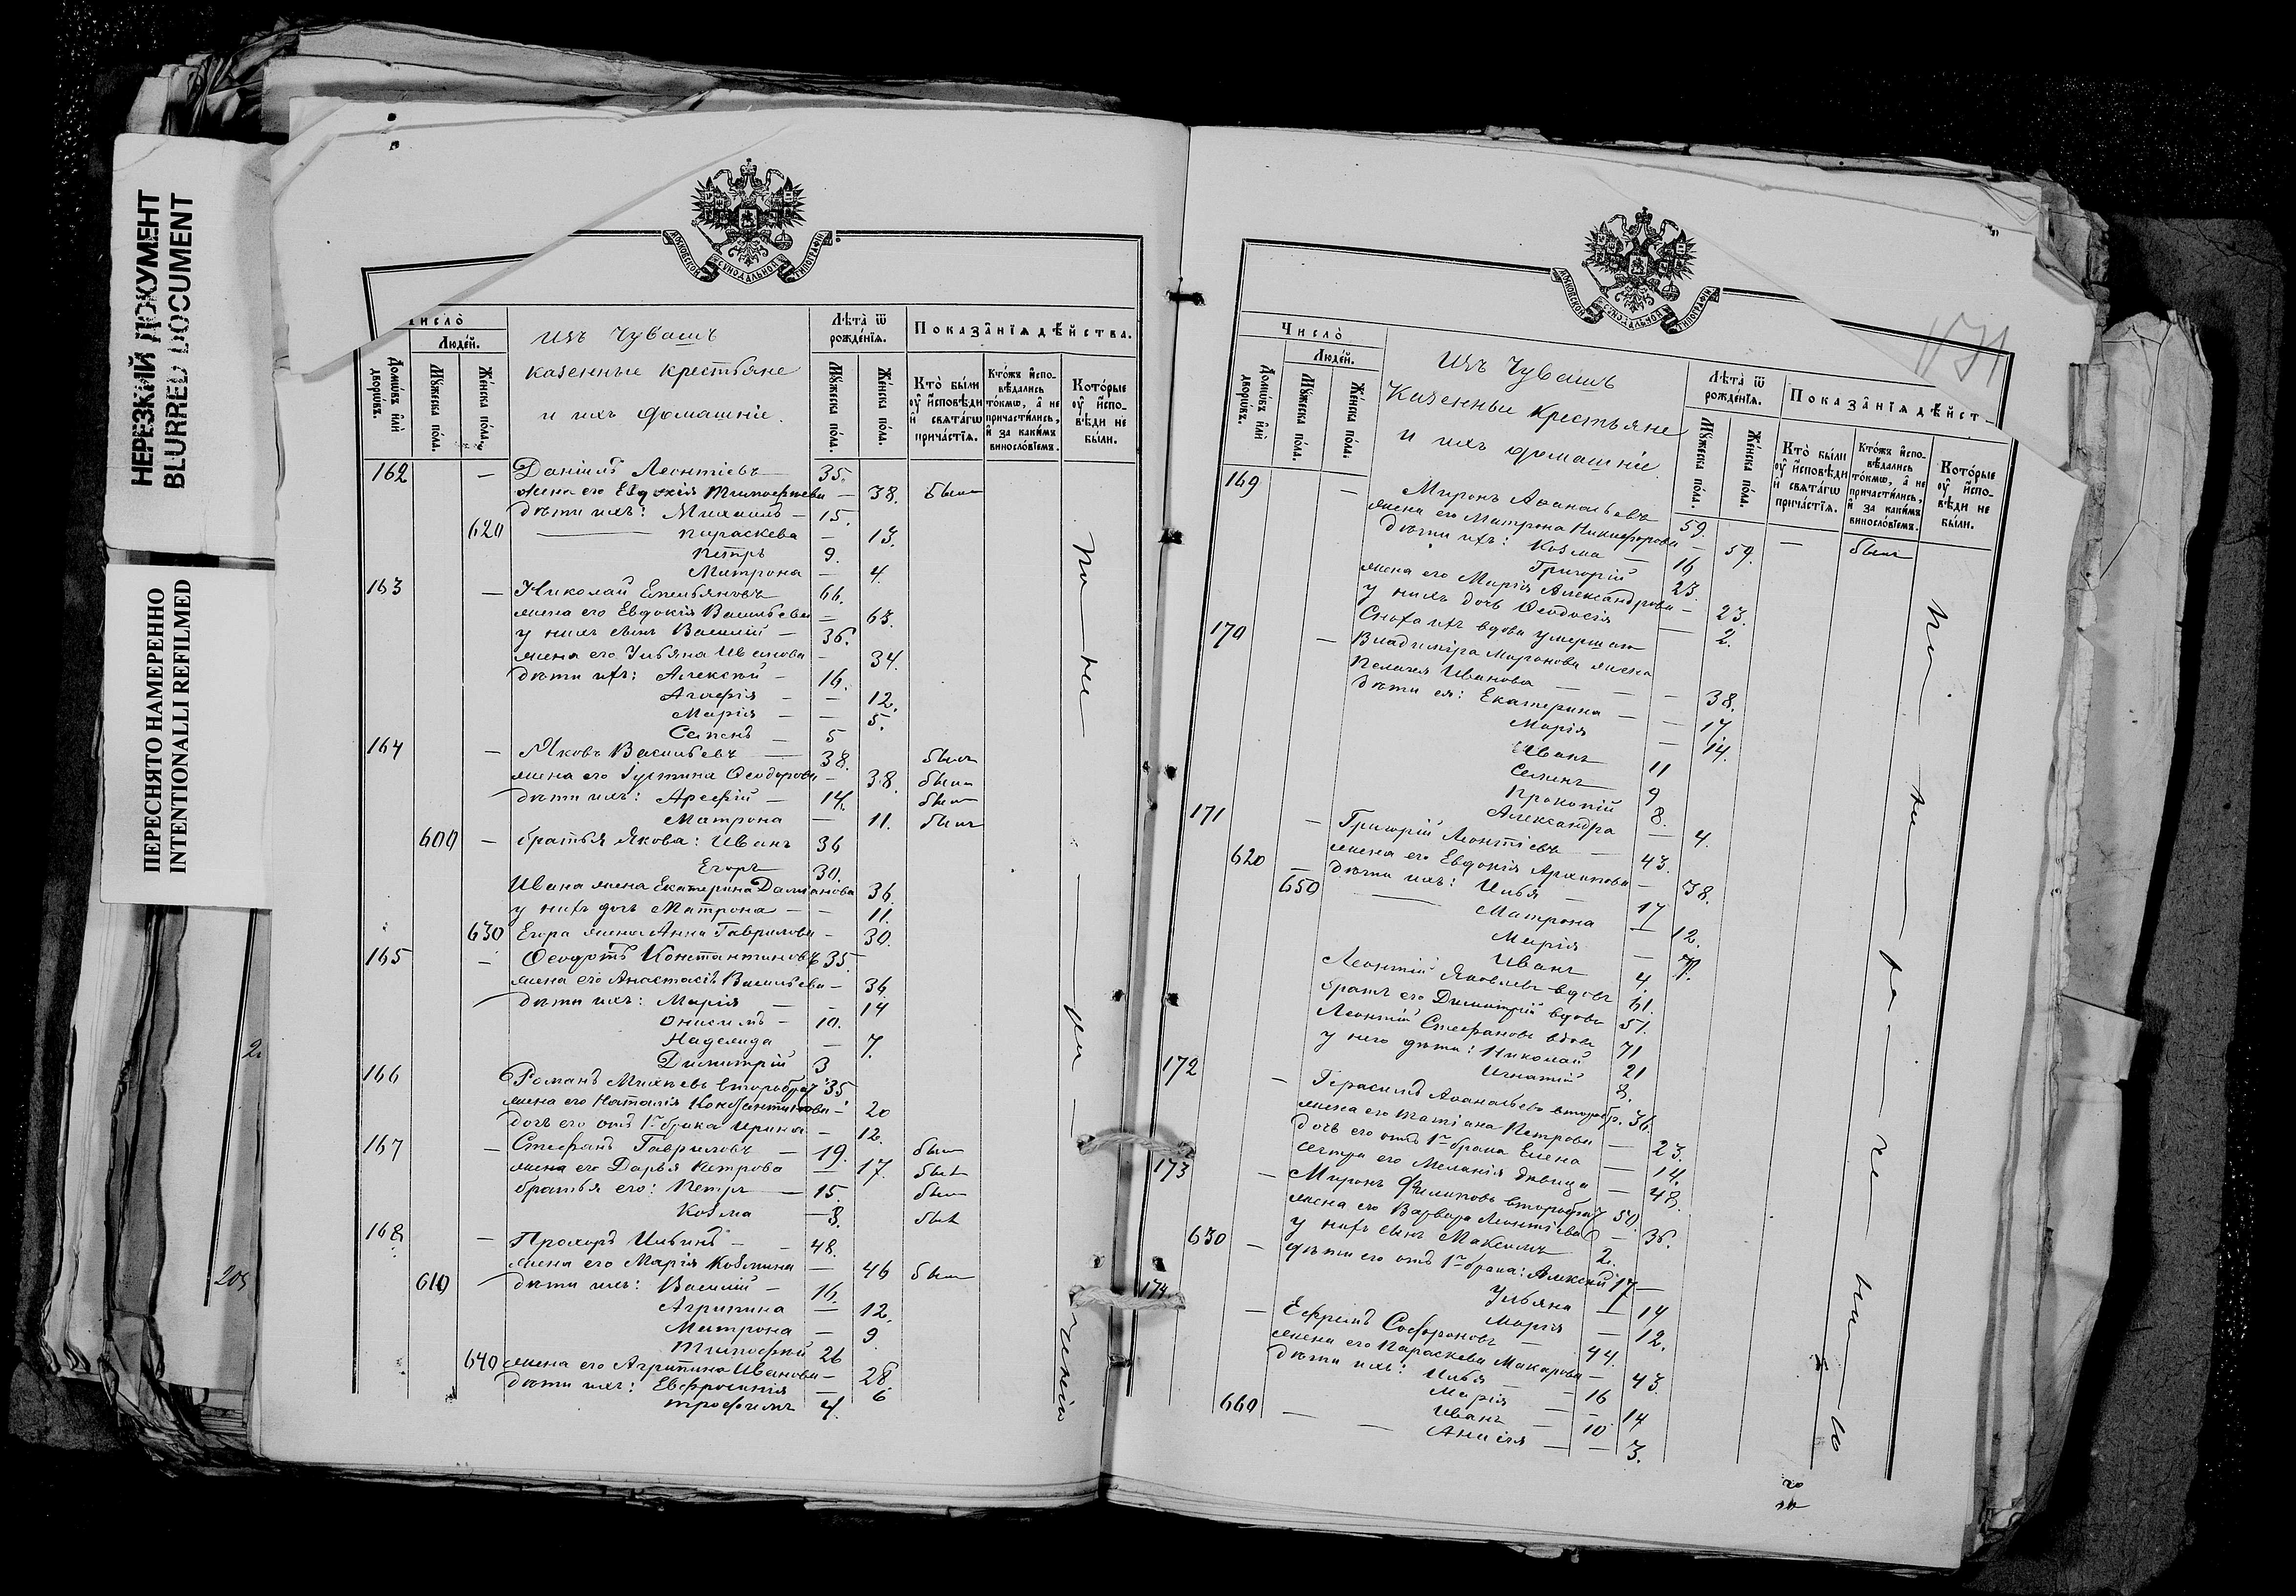 НЕРЕЗКИЙ ДОКУМЕНТ
BLURRED DOCUMENT
ПЕРЕСНЯТО НАМЕРЕННО
INTENTIONALLI REFILMED
2.
205
МОСКОВСКОЙ СѴНОДАЛЬНОЙ ТИПОГРАФІИ
Число̀
Люде́й.
Домѡ́въ и҆лѝ дворѡ́въ.
Мꙋ́жеска по́ла.
Же́нска по́ла.
Изъ Чувашъ
казенные крестьяне
и ихъ домашніе.
Лѣ́та ѿ рожде́нїѧ.
Мꙋ́жеска по́ла.
Же́нска по́ла.
Показа̂нїѧ дѣ́йства.
Кто̀ бы́ли ᲂу҆ и҆сповѣди и҆ свѧта́гѡ прича́стїѧ.
Кто́жъ и҆спо-вѣдались то́кмѡ, а҆ не причасти́лись, и҆ за каки́мъ винословїемъ.
Кото́рые ᲂу҆ и҆спо-вѣди не бы́ли.
162 — Даніилъ Леонтіевъ 35.
жена его Евдокія Тимофеева — 38. были
дѣти ихъ: Михаилъ — 15.
620 Параскева — 13.
Петръ 9.
Матрона — 4.
163 — Николай Емельяновъ 66.
жена его Евдокія Васильева — 63.
у нихъ сынъ Василій — 36.
жена его Ульяна Иванова — 34.
дѣти ихъ: Алексѣй — 16.
Агафія — — 12.
Марія — — 5.
Семенъ — 5
164 — Яковъ Васильевъ — 38. были
жена его Іустина Ѳеодорова — 38. были
дѣти ихъ: Арсеній — 14. были
Матрона — 11. были
600 — братья Якова: Иванъ 36
Егоръ 30.
Ивана жена Екатерина Даміанова 36
у нихъ дочь Матрона — — 11.
630 Егора жена Анна Гаврилова — 30.
165 — Ѳеодотъ Константиновъ 35.
жена его Анастасія Васильева — 36
дѣти ихъ: Марія — — 14
Онисимъ — 10.
Надежда — 7.
Димитрій 3
166 Романъ Михѣевъ второбрач. 35
жена его Наталія Константинова — 20
дочь его отъ 1го брака Ирина — 12.
167 — Стефанъ Гавриловъ — 19. были
жена его Дарья Петрова — 17. были
братья его: Петръ — 15. были
Козма — 8. были
168 — Прохоръ Ильинъ — 48.
жена его Марія Козмина — 46 были
610 дѣти ихъ: Василій — 16.
Агрипина — 12.
Матрона — 9.
Тимофей 26
640 жена его Агрипина Иванова — 28
дѣти ихъ: Евфросинія — 6
Трофимъ 4.
171
МОСКОВСКОЙ СѴНОДАЛЬНОЙ ТИПОГРАФІИ
Число̀
Люде́й.
Домѡ́въ и҆лѝ дворѡ́въ.
Мꙋ́жеска по́ла.
Же́нска по́ла.
Изъ Чувашъ
Казенные крестьяне
и ихъ домашніе
Лѣ́та ѿ рожде́нїѧ.
Мꙋ́жеска по́ла.
Же́нска по́ла.
Показа̂нїѧ дѣ́йст
Кто̀ бы́ли ᲂу҆ и҆сповѣди и҆ свѧта́гѡ прича́стїѧ.
Кто́жъ и҆спо-вѣдались то́кмѡ, а҆ не причасти́лись, и҆ за каки́мъ винословїемъ.
Кото́рые ᲂу҆ и҆спо-вѣди не бы́ли.
169 — Миронъ Аѳанасьевъ 59.
жена его Матрона Никифорова — 59. — были
дѣти ихъ: Козма — 16
Григорій 23.
жена его Марія Александрова — 23.
у нихъ дочь Ѳеодосія — 2.
170 — Сноха ихъ вдова умершаго
Владиміра Миронова жена
Пелагея Иванова — — — 38.
дѣти ея: Екатерина — — 17.
Марія — 14.
Иванъ 11
Семенъ 9
Прокопій 8.
Александра — 4.
171 — Григорій Леонтіевъ — 43.
жена его Евдокія Архипова — 38.
620 — дѣти ихъ: Илья — 17
650 Матрона — 12.
Марія — 7.
Иванъ 4.
Леонтій Яковлевъ вдовъ 61.
братъ его Димитрій вдовъ 51.
Леонтій Стефановъ вдовъ 71
у него дѣти: Николай 21
Игнатій 8.
172 — Герасимъ Аѳанасьевъ второбр. 36.
жена его Татіана Петрова — 23.
дочь его отъ 1го брака Елена — 14.
сестра его Меланія дѣвица — 48.
173 — Миронъ Филиповъ второбрач 50.
жена его Варвара Леонтіева — 36.
у нихъ сынъ Максимъ 2.
630 — дѣти его отъ 1го брака: Алексѣй 17 —
Ульяна — 14
Марія — 12.
174. — Ефремъ Софроновъ — 44.
жена его Параскева Макарова — 43.
дѣти ихъ: Илья — 16
Марія — — 14
660 — Иванъ — 10
— Анисія — — 3.